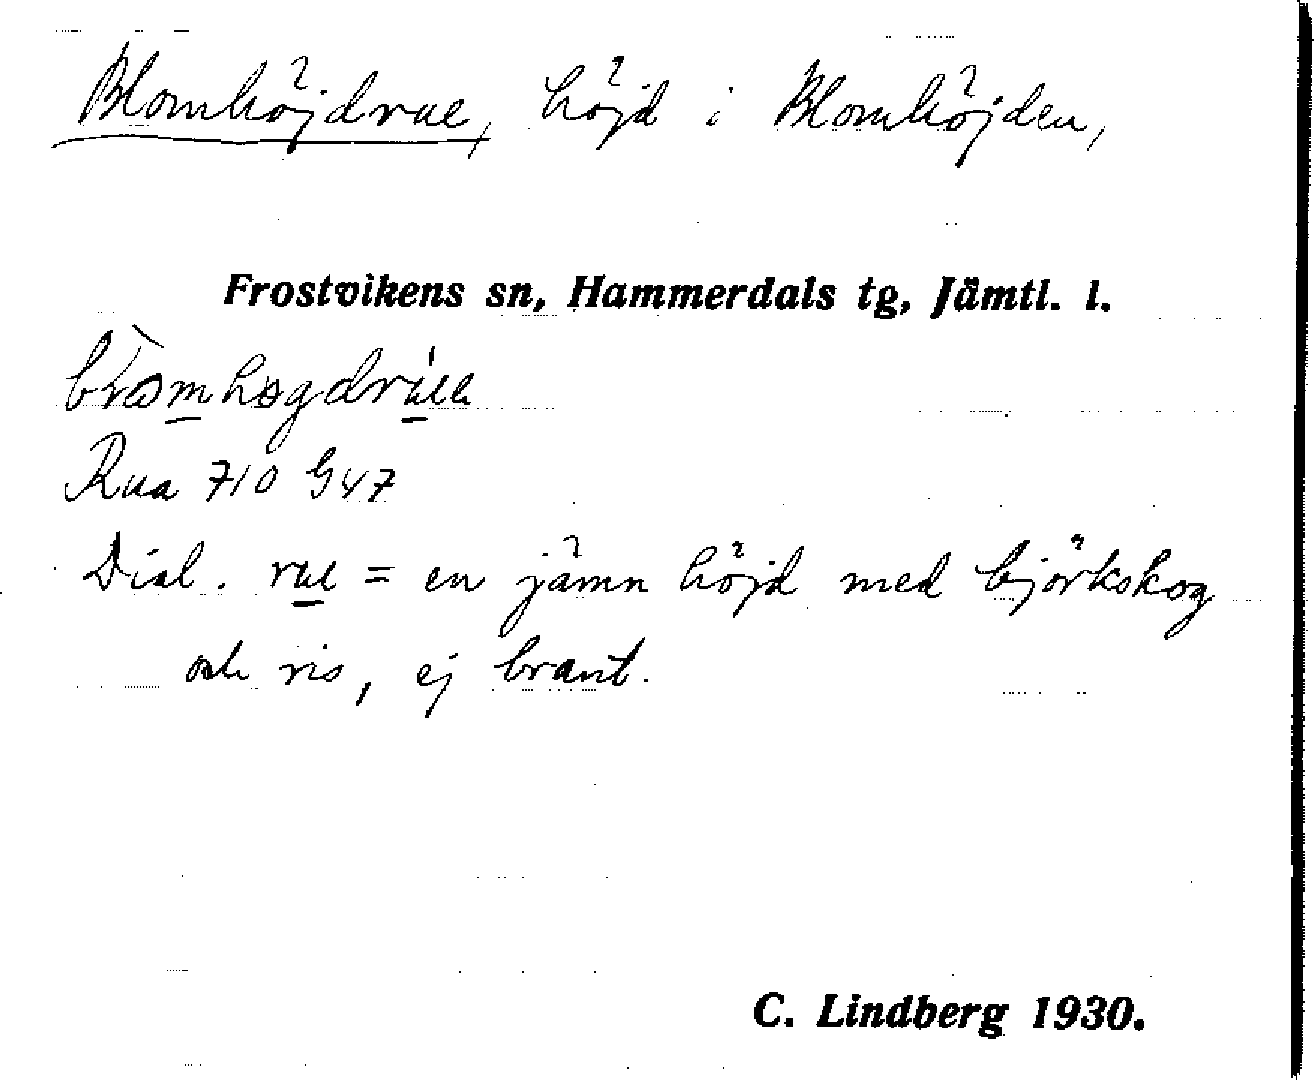 Blomhöjdrue, höjd i Blomhöjden,
Frostvikens sn, Hammerdals tg, Jämtl. l.
Rua 710 G47
Dial. rue = en jämn höjd med björkskog
och ris, ej brant.
C. Lindberg 1930.